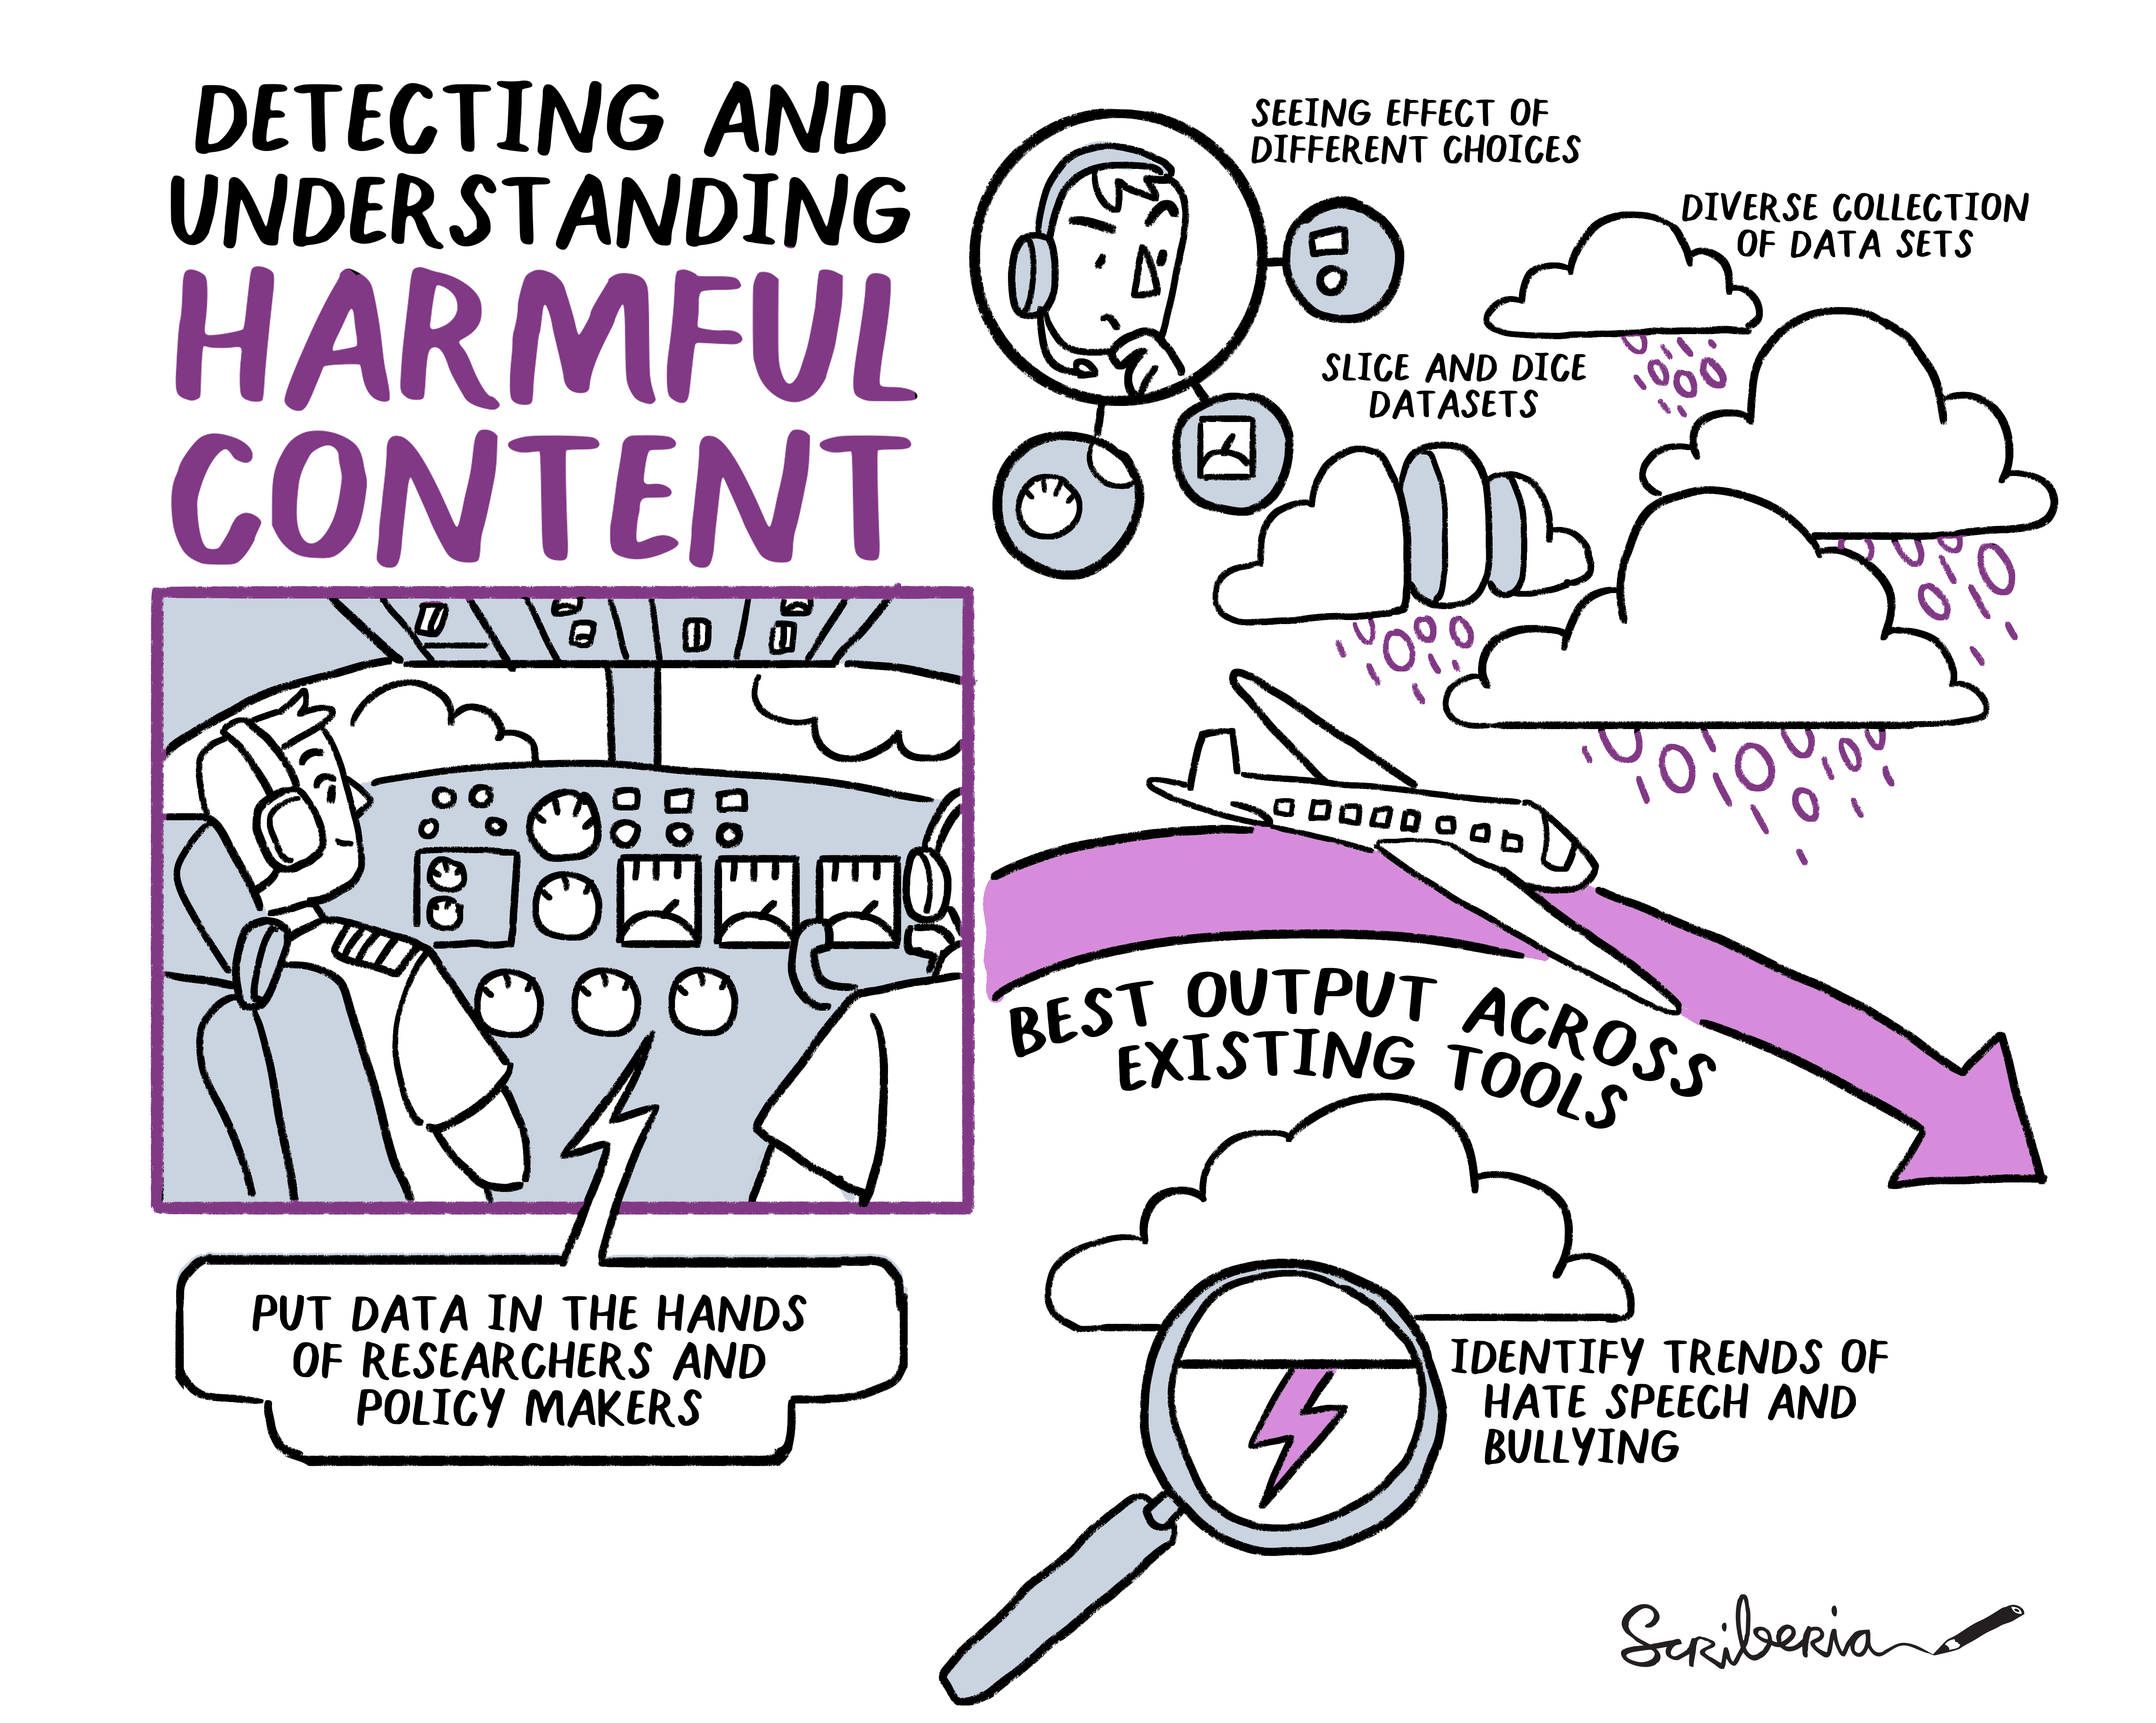 DETECTING AND
UNDERSTANDING
HARMFUL
CONTENT
SEEING EFFECT OF
DIFFERENT CHOICES
DIVERSE COLLECTION
OF DATA SETS
SLICE AND DICE
DATASETS
BEST OUTPUT ACROSS
EXISTING TOOLS
PUT DATA IN THE HANDS
OF RESEARCHERS AND
POLICY MAKERS
IDENTIFY TRENDS OF
HATE SPEECH AND
BULLYING
Scriberia